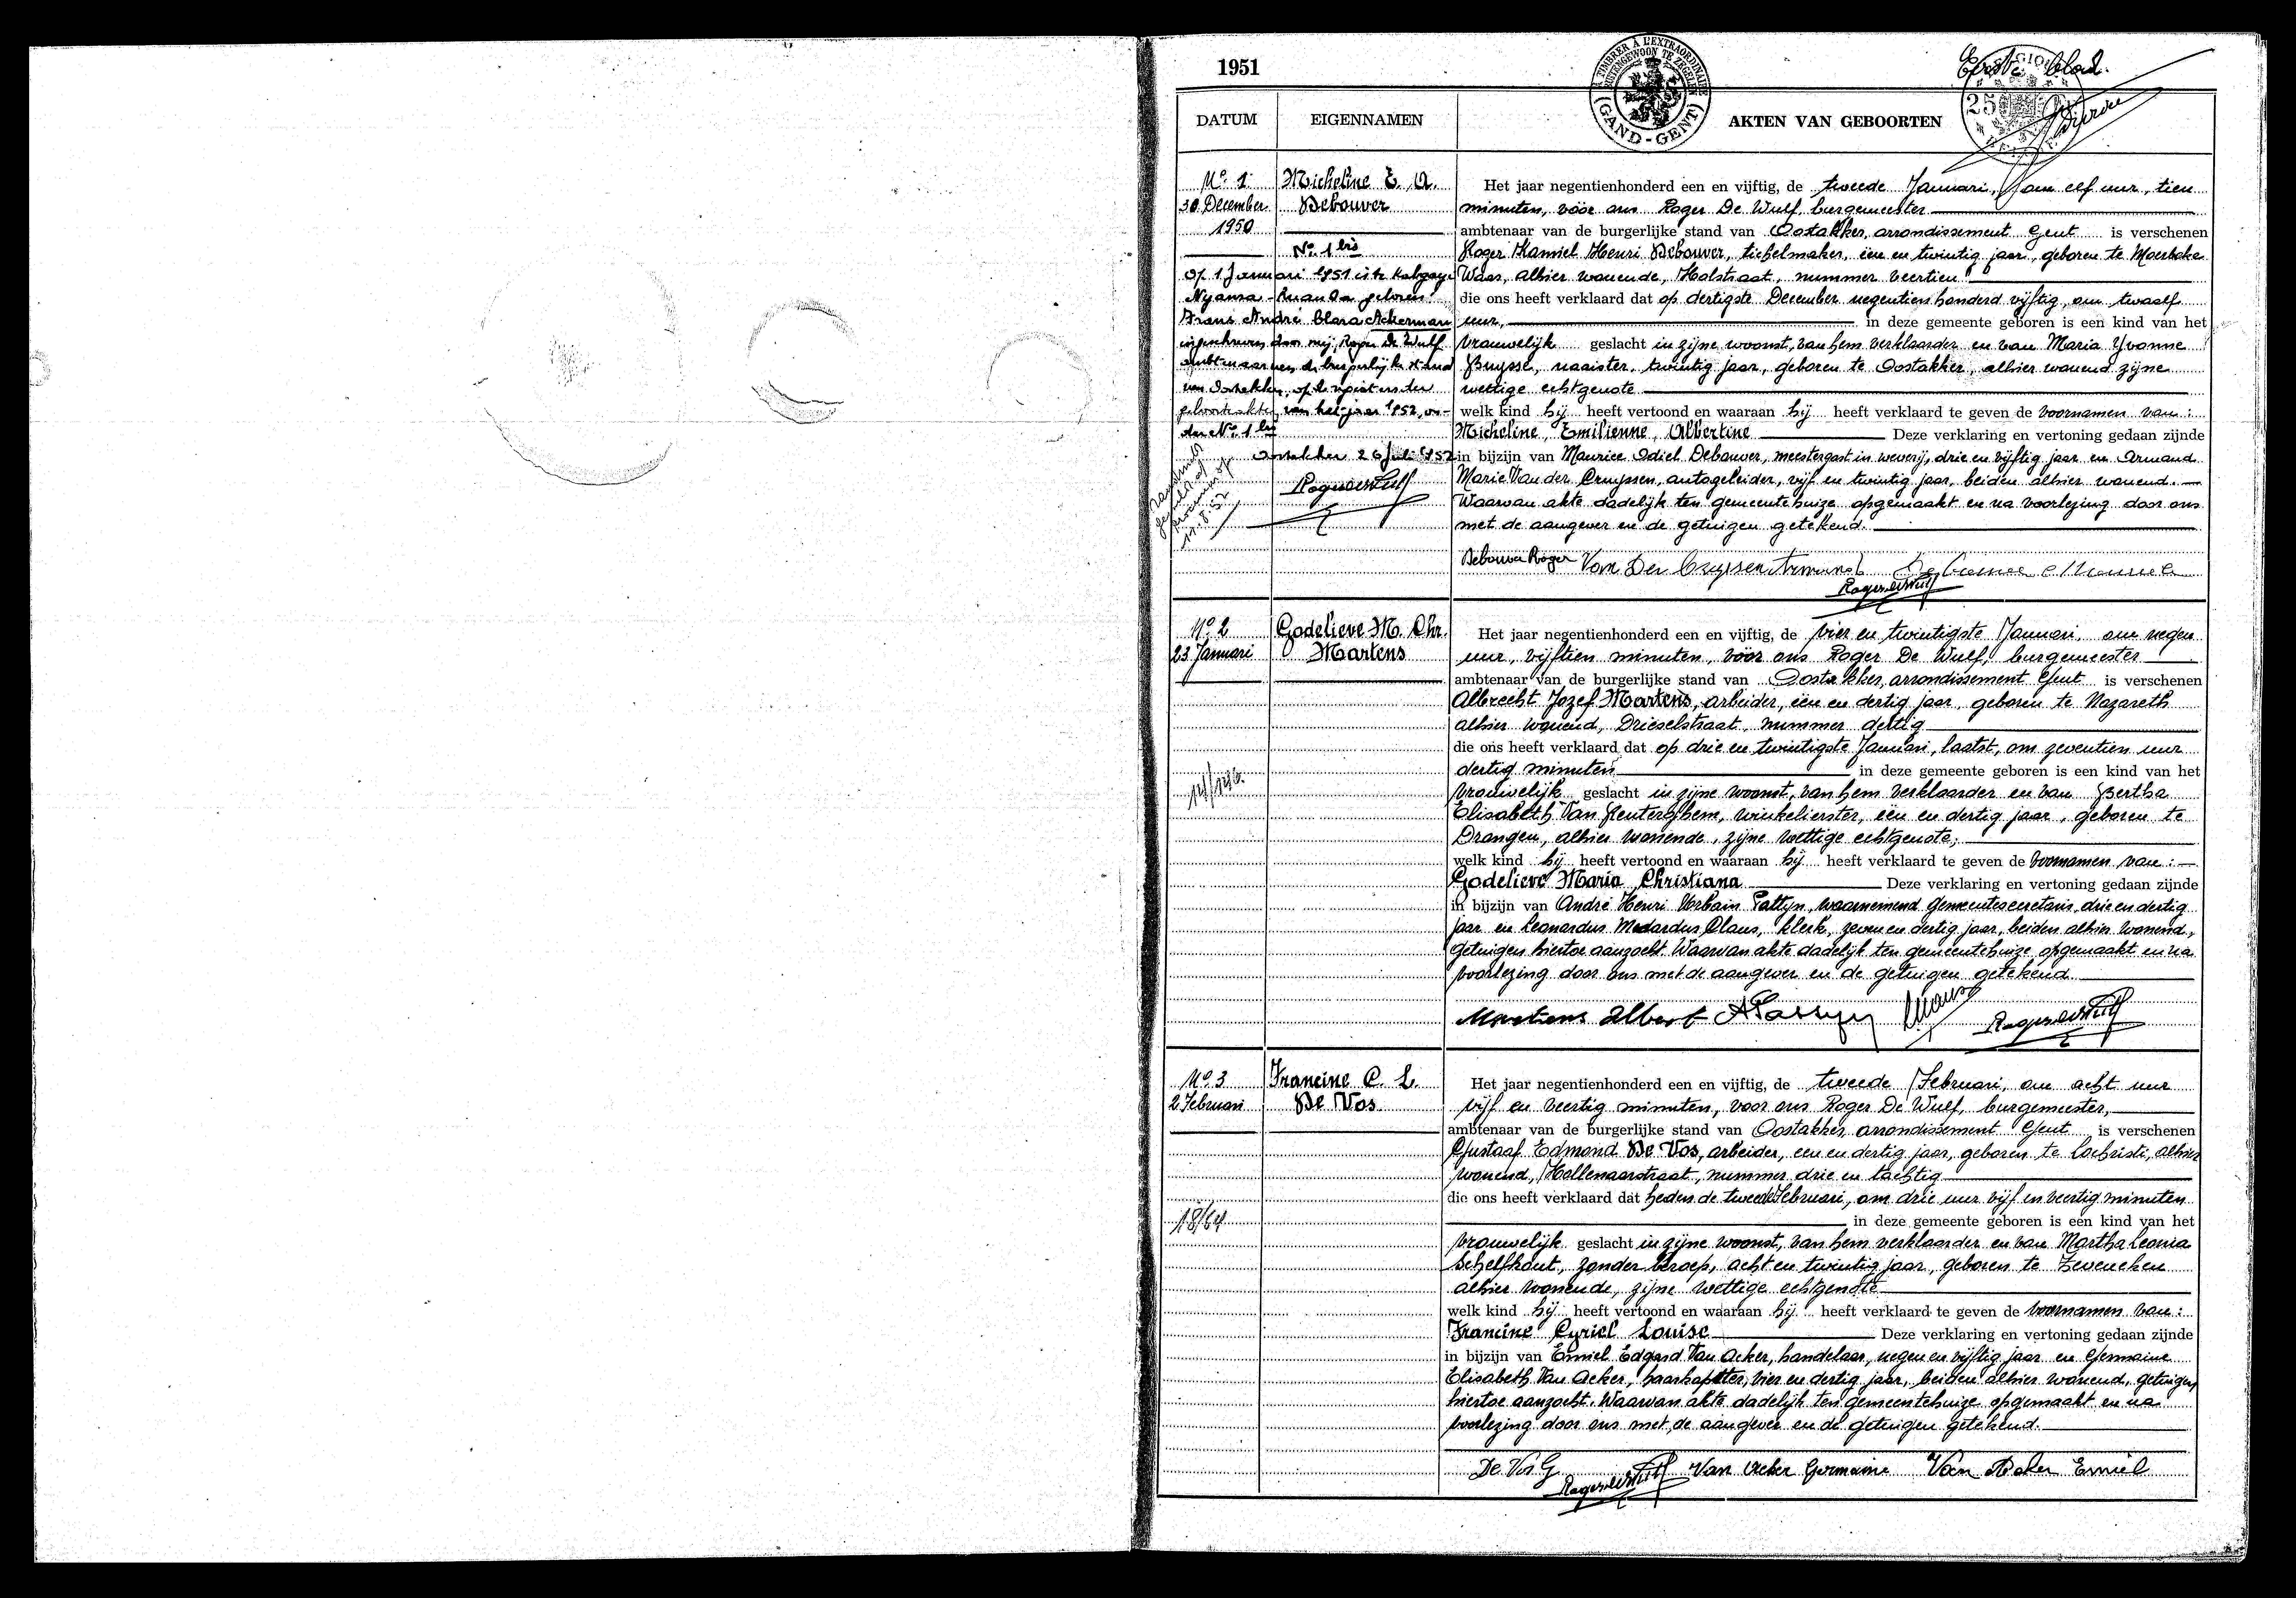 1951
Eerste blad.
TIMBRER À L'EXTRAORDINAIRE
BUITENGEWOON TE ZEGELEN
(GAND-GENT)
25
DATUM
EIGENNAMEN
AKTEN VAN GEBOORTEN
No. 1
30 December
1950
Micheline E. A.
Debouver
No. 1 bis
Op 1 Januari 1951 is te Kabgayi
Nyanza-Ruanda geboren:
Frans André Clara Ackerman
ingeschreven door mij, Roger De Wulf
ambtenaar van de burgerlijke stand
van Oostakker, op de registers der
geboorteakten van het jaar 1952, on-
der No. 1 bis
Oostakker 26 Juli 1952
11.8.52
Het jaar negentienhonderd een en vijftig, de tweede Januari, om elf uur, tien
minuten, vóór ons Roger De Wulf, burgemeester
ambtenaar van de burgerlijke stand van Oostakker, arrondissement Gent is verschenen
Roger Kamiel Henri Debouver, tichelmaker, één en twintig jaar, geboren te Moerbeke
Waas, alhier wonende, Holstraat, nummer veertien
die ons heeft verklaard dat op dertigste December negentienhonderd vijftig, om twaalf
uur, in deze gemeente geboren is een kind van het
vrouwelijk geslacht in zijne woonst, van hem verklaarder en van Maria Yvonne
Buysse, naaister, twintig jaar, geboren te Oostakker, alhier wonend zijne
wettige echtgenote
welk kind hij heeft vertoond en waaraan hij heeft verklaard te geven de voornamen van:
Micheline, Emilienne, Albertine Deze verklaring en vertoning gedaan zijnde
in bijzijn van Maurice Odiel Debouver, meestergast in weverij, drie en vijftig jaar en Armand
Marie Van der Cruyssen, autogeleider, vijf en twintig jaar, beiden alhier wonend.
Waarvan akte dadelijk ten gemeentehuize opgemaakt en na voorlezing door ons
met de aangever en de getuigen getekend.
Debouver Roger Van Der Cruyssen Armand
No. 2
23 Januari
Godelieve M. Chr.
Martens
Het jaar negentienhonderd een en vijftig, de vier en twintigste Januari, om negen
uur, vijftien minuten, vóór ons Roger De Wulf, burgemeester
ambtenaar van de burgerlijke stand van Oostakker, arrondissement Gent is verschenen
Albrecht Jozef Martens, arbeider, één en dertig jaar, geboren te Nazareth
alhier wonend, Drieselstraat, nummer dertig
die ons heeft verklaard dat op drie en twintigste Januari, laatst, om zeventien uur
dertig minuten in deze gemeente geboren is een kind van het
vrouwelijk geslacht in zijne woonst, van hem verklaarder en van Bertha
Elisabeth Van Renterghem, winkelierster, één en dertig jaar, geboren te
Drongen, alhier wonende, zijne wettige echtgenote;
welk kind hij heeft vertoond en waaraan hij heeft verklaard te geven de voornamen van:
Godelieve Maria Christiana Deze verklaring en vertoning gedaan zijnde
in bijzijn van André Henri Urbain Pattyn, waarnemend gemeentesecretaris, drie en dertig
jaar en Leonardus Medardus Claus, klerk, zeven en dertig jaar, beiden alhier wonend,
getuigen hiertoe aanzocht. Waarvan akte dadelijk ten gemeentehuize opgemaakt en na
voorlezing door ons met de aangever en de getuigen getekend
Martens Albert APattyn Claus
No. 3
2 Februari
18/64
Francine C. L.
De Vos
Het jaar negentienhonderd een en vijftig, de tweede Februari, om acht uur
vijf en veertig minuten, voor ons Roger De Wulf, burgemeester,
ambtenaar van de burgerlijke stand van Oostakker, arrondissement Gent is verschenen
Gustaaf Edmond De Vos, arbeider, een en dertig jaar, geboren te Lochristi, alhier
wonend, Hollenaarstraat, nummer drie en tachtig
die ons heeft verklaard dat heden de tweede Februari, om drie uur vijf en veertig minuten
in deze gemeente geboren is een kind van het
vrouwelijk geslacht in zijne woonst, van hem verklaarder en van Martha Leonia
Schelfhout, zonder beroep, acht en twintig jaar, geboren te Zeveneken
alhier wonende, zijne wettige echtgenote
welk kind hij heeft vertoond en waaraan hij heeft verklaard te geven de voornamen van:
Francine Cyriel Louise Deze verklaring en vertoning gedaan zijnde
in bijzijn van Emiel Edgard Van Acker, handelaar, negen en vijftig jaar en Germaine
Elisabeth Van Acker, haarkapster, vier en dertig jaar, beiden alhier wonend, getuigen
hiertoe aanzocht. Waarvan akte dadelijk ten gemeentehuize opgemaakt en na
voorlezing door ons met de aangever en de getuigen getekend.
De Vos G Van Acker Germaine Van Acker Emiel